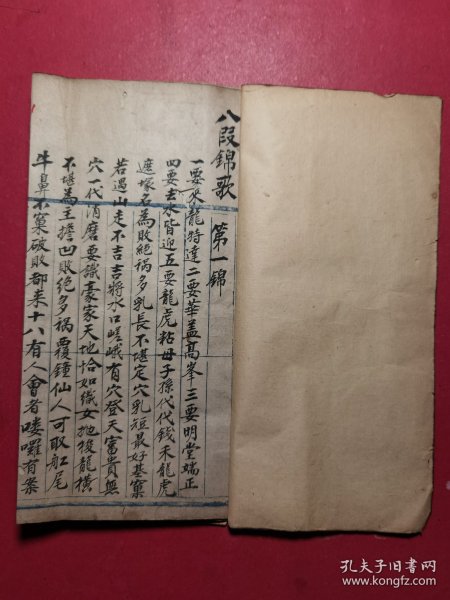 八段錦歌 第一錦
一要來龍特達二要華蓋高峯三要明堂端正
四要去水皆迎五要龍虎粘母子孫代代錢禾龍虎
遮塚名為敗絕禍多乳長不堪定穴乳短最好基窠
若遇山走不吉吉將水口嵯峨有穴登天富貴無
穴一代消磨要識豪家天地恰如織女抛梭龍橫
不堪為主擔凹敗絕多禍覆鐘仙人可取舡尾
牛鼻不窠破敗都来十八有人會者嘍囉有案
孔夫子旧书网
www.kongfz.com